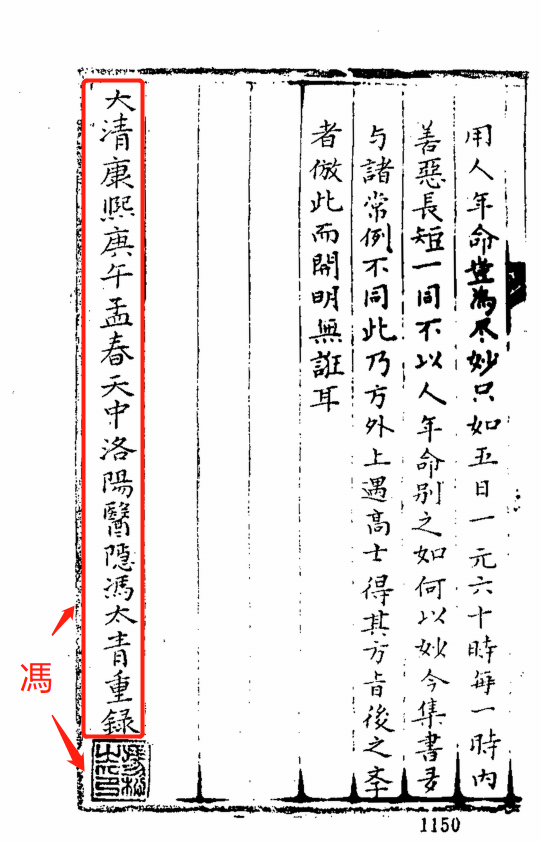 用人年命豈為尽妙只如五日一元六十時每一時內
善惡長短一同不以人年命別之如何以妙今集書
与諸常例不同此乃方外上遇高士得其方旨後之
者倣此而開明無誑耳
大清康熙庚午孟春天中洛陽醫隱馮太青重錄
馮
1150